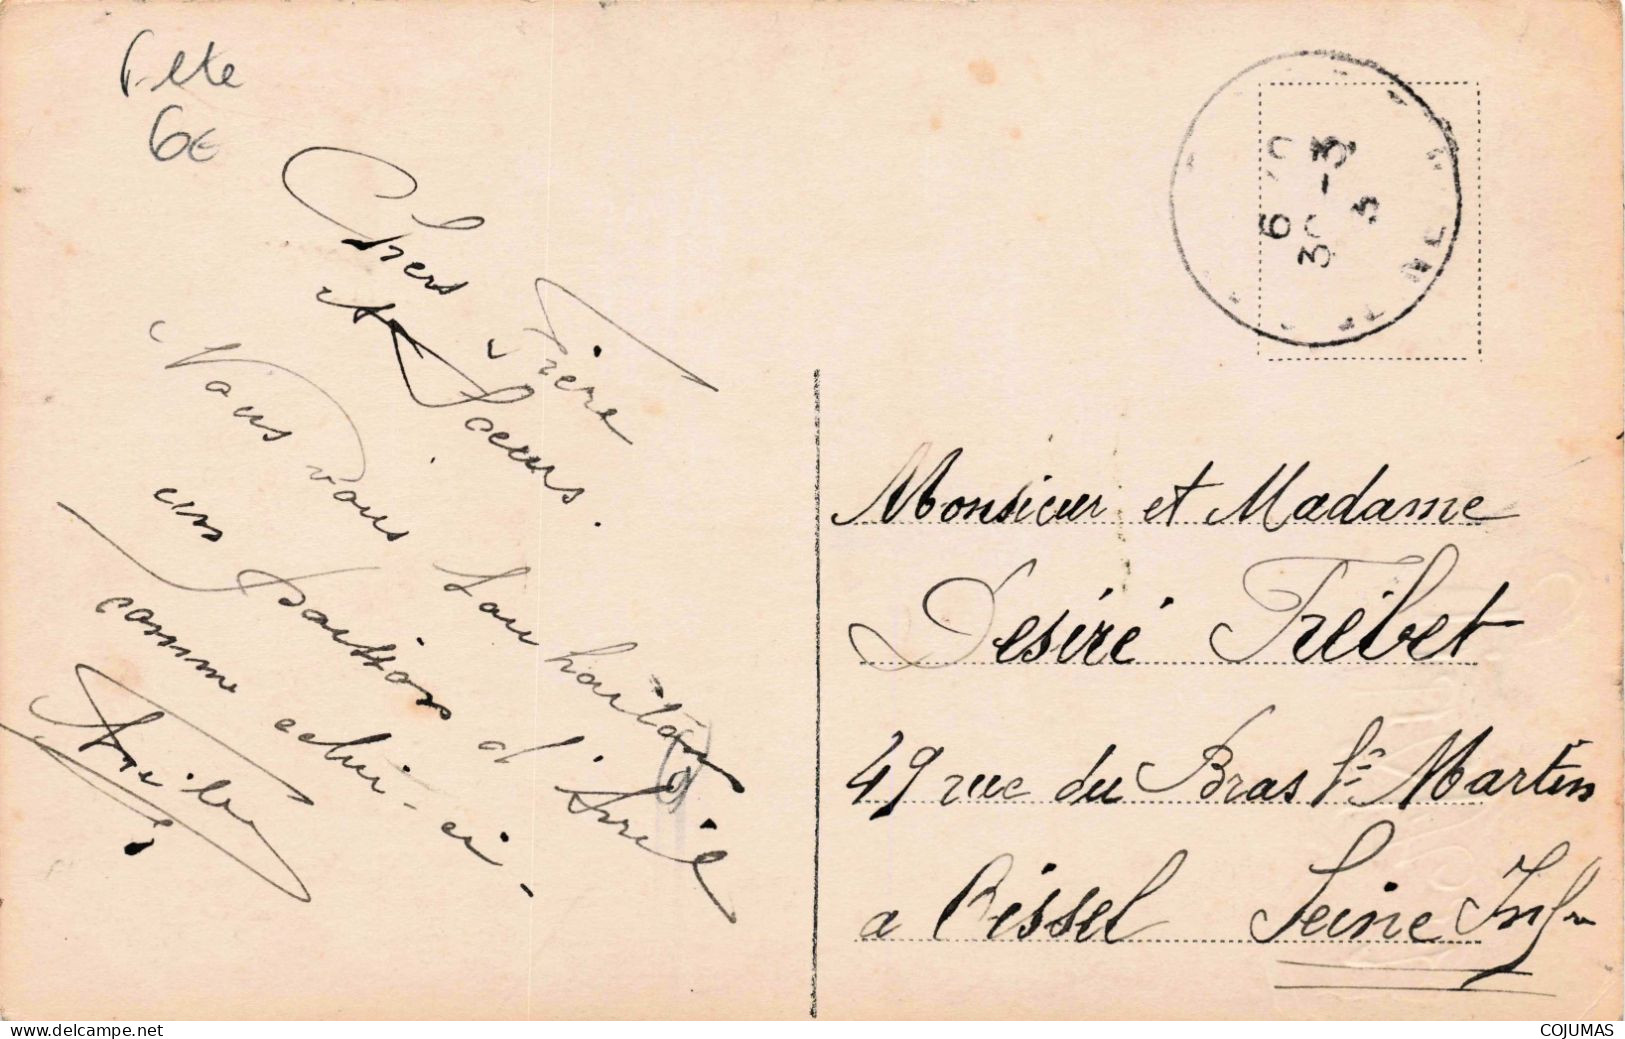 Fete
6€
Chers Frère
et Soeurs.
Nous vous souhaitons
un poisson d'Avril
comme celui-ci.
6 30
30 -3
3
Monsieur et Madame
Desiré Trébet
49 rue du Bras St Martin
a Oissel Seine Infre
COJUMAS
delcampe.net